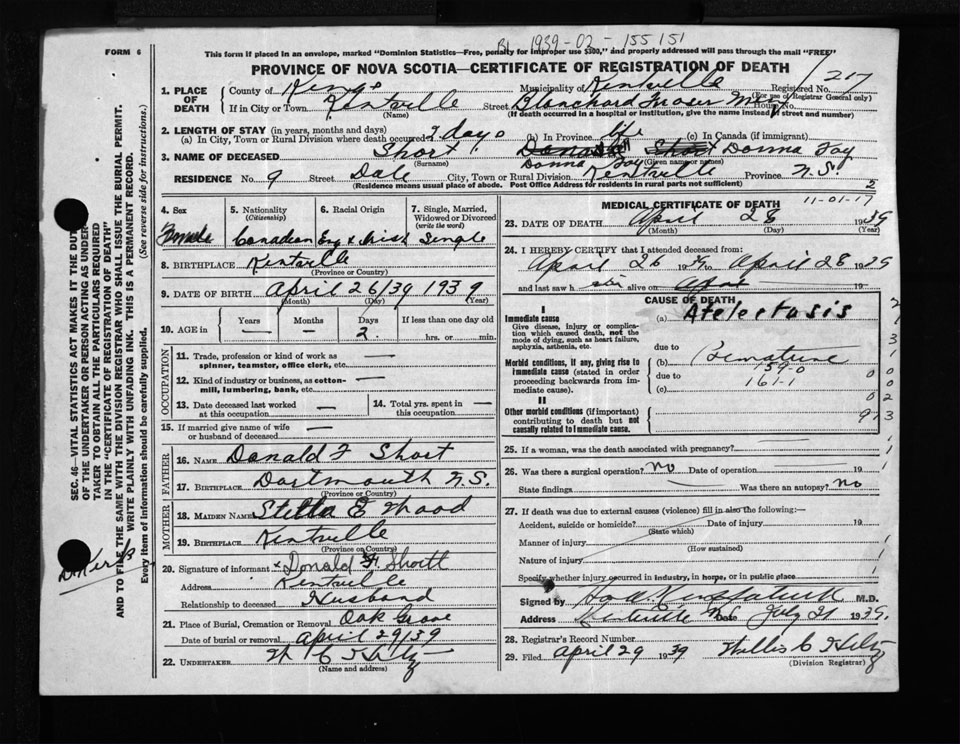 FORM 6
1939-02-155151
This form if placed in an envelope, marked "Dominion Statistics—Free, penalty for improper use $300," and properly addressed will pass through the mail "FREE"
PROVINCE OF NOVA SCOTIA—CERTIFICATE OF REGISTRATION OF DEATH
217
1. PLACE OF DEATH
County of Kings Municipality of Kentville Registered No.
(For use of Registrar General only)
If in City or Town Kentville Street Blanchard Fraser Hosp. No.
(Name) (If death occurred in a hospital or institution, give the name instead of street and number)
2. LENGTH OF STAY (in years, months and days)
(a) In City, Town or Rural Division where death occurred 2 days (b) In Province life (c) In Canada (if immigrant)
3. NAME OF DECEASED Short Donna Fay
(Surname) Donna Fay (Given name or names)
RESIDENCE No 9 Street Dale City, Town or Rural Division Kentville Province N.S.
(Residence means usual place of abode. Post Office Address for residents in rural parts not sufficient)
2
4. Sex
Female
5. Nationality
(Citizenship)
Canadian
6. Racial Origin
Eng & Irish
7. Single, Married, Widowed or Divorced
(write the word)
Single
8. BIRTHPLACE Kentville
(Province or Country)
9. DATE OF BIRTH April 26/39 1939
(Month) (Day) (Year)
10. AGE in
Years
—
Months
—
Days
2
If less than one day old
hrs. or min.
OCCUPATION
11. Trade, profession or kind of work as spinner, teamster, office clerk, etc. —
12. Kind of industry or business, as cotton-mill, lumbering, bank, etc. —
13. Date deceased last worked at this occupation —
14. Total yrs. spent in this occupation —
15. If married give name of wife or husband of deceased —
FATHER
16. NAME Donald F Short
17. BIRTHPLACE Dartmouth N.S.
(Province or Country)
MOTHER
18. MAIDEN NAME Stella E Wood
19. BIRTHPLACE Kentville
(Province or Country)
20. Signature of informant x Donald F. Shortt
Address Kentville
Relationship to deceased Husband
21. Place of Burial, Cremation or Removal Oak Grove
Date of burial or removal April 29/39
22. UNDERTAKER W C Hiltz
(Name and address)
MEDICAL CERTIFICATE OF DEATH
11-01-17
23. DATE OF DEATH April 28 1939
(Month) (Day) (Year)
24. I HEREBY CERTIFY that I attended deceased from:
April 26 1939 to April 28 1939
and last saw h alive on 19
CAUSE OF DEATH
I
Immediate cause
Give disease, injury or complication which caused death, not the mode of dying, such as heart failure, asphyxia, asthenia, etc.
(a) Atelectasis
due to
Morbid conditions, if any, giving rise to immediate cause (stated in order proceeding backwards from immediate cause).
(b) Premature
1590
due to 161-1
(c)
II
Other morbid conditions (if important) contributing to death but not causally related to immediate cause.
25. If a woman, was the death associated with pregnancy?
26. Was there a surgical operation? No Date of operation 19
State findings Was there an autopsy? No
27. If death was due to external causes (violence) fill in also the following:—
Accident, suicide or homicide? Date of injury 19
(State which)
Manner of injury
(How sustained)
Nature of injury
Specify whether injury occurred in industry, in home, or in public place
Signed by M.D.
Address Kentville Date July 31 1939
28. Registrar's Record Number
29. Filed April 29 1939 Willis C Hiltz
(Division Registrar)
SEC. 46—VITAL STATISTICS ACT MAKES IT THE DUTY OF THE UNDERTAKER OR PERSON ACTING AS UNDERTAKER TO OBTAIN ALL THE PARTICULARS REQUIRED IN THE "CERTIFICATE OF REGISTRATION OF DEATH" AND TO FILE THE SAME WITH THE DIVISION REGISTRAR WHO SHALL ISSUE THE BURIAL PERMIT.
WRITE PLAINLY WITH UNFADING INK. THIS IS A PERMANENT RECORD.
Every item of information should be carefully supplied. (See reverse side for instructions.)